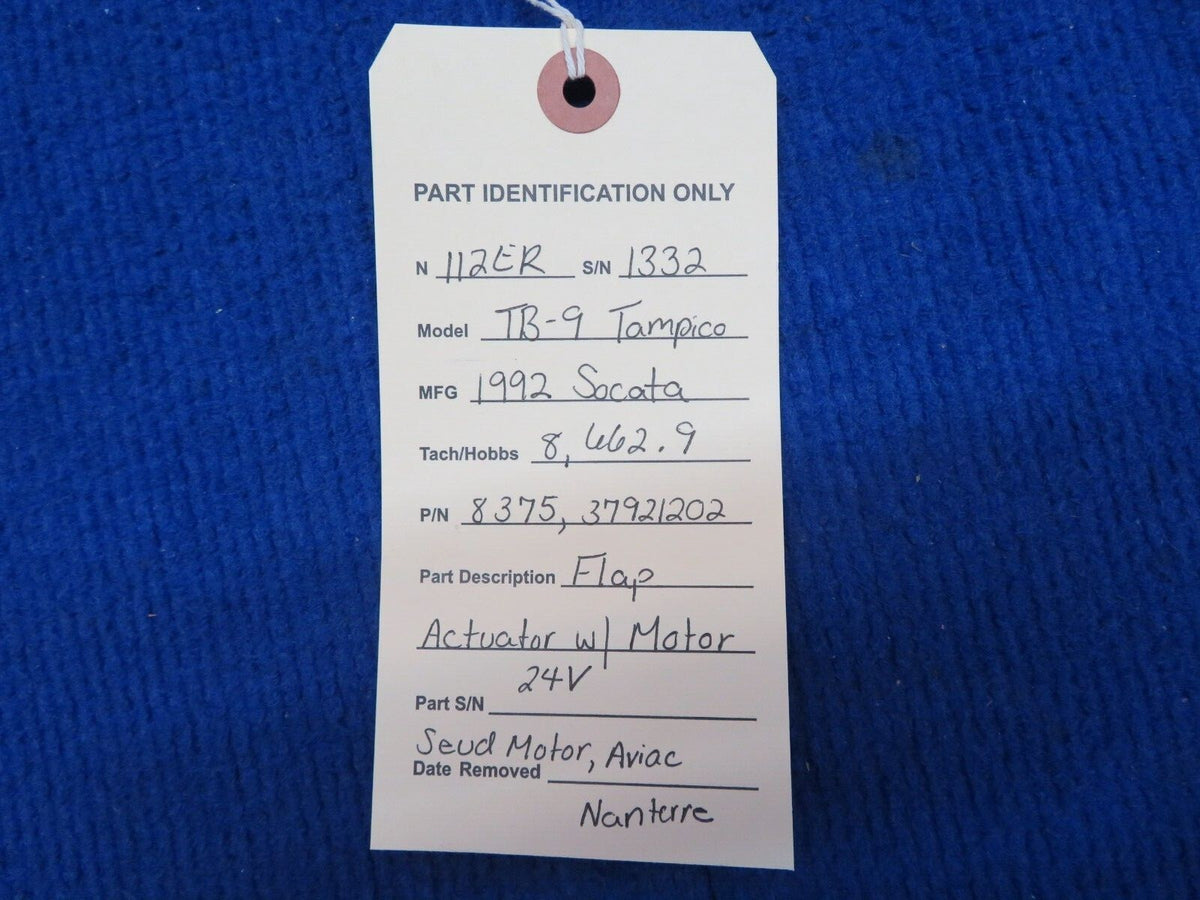 PART IDENTIFICATION ONLY
N 112ER S/N 1332
Model TB-9 Tampico
MFG 1992 Socata
Tach/Hobbs 8,662.9
P/N 8375, 37921202
Part Description Flap
Actuator w/ Motor
24V
Part S/N
Seud Motor, Aviac
Date Removed
Nanterre